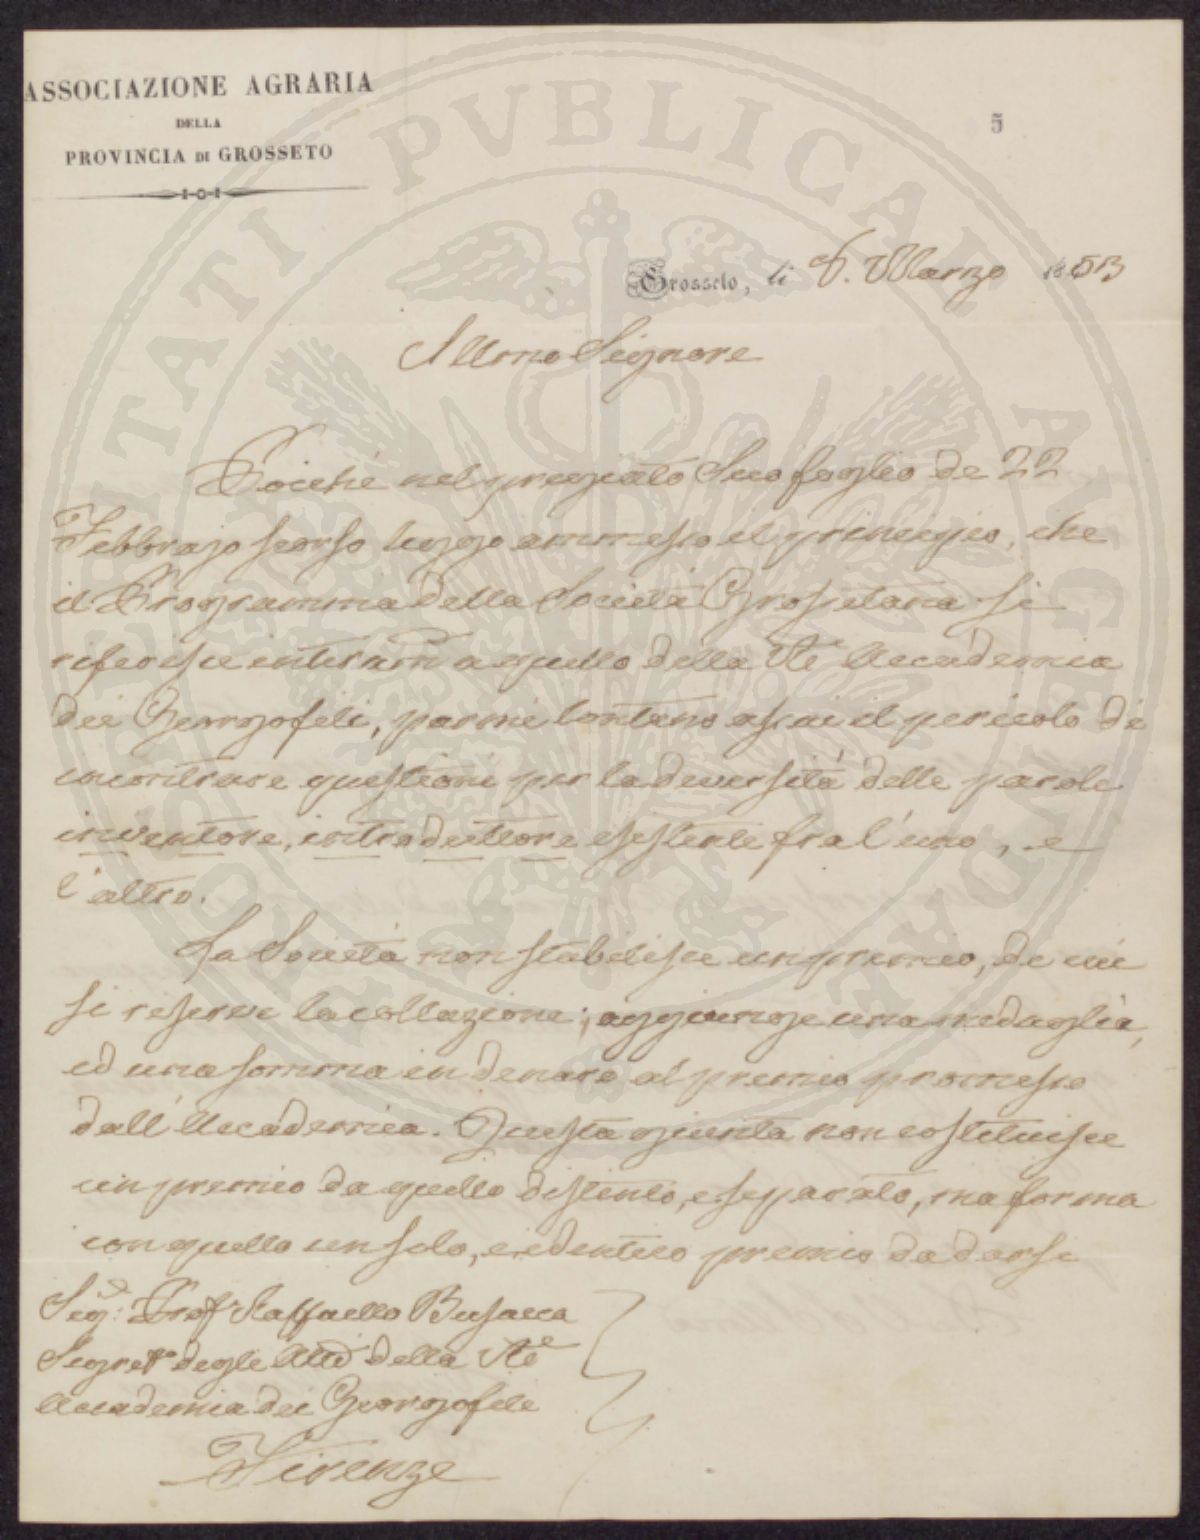 ASSOCIAZIONE AGRARIA
DELLA
PROVINCIA DI GROSSETO
5
Grosseto, li 6. Marzo 1853
Illmo Signore
Poiché nel pregiato Suo foglio de 22
Febbrajo scorso leggo ammesso il principio, che
il Programma della Società Grossetana si
riferisce interamte a quello della Re Accademia
dei Georgofili, parmi lontano assai il pericolo di
incontrare questioni per la diversità delle parole
inventore, introduttore esistente fra l'uno, e
l'altro.
La Società non stabilisce un premio, di cui
si riservi la collazione; aggiunge una medaglia,
ed una somma in denaro al premio promesso
dall'Accademia. Questa giunta non costituisce
un premio da quello distinto, e separato, ma forma
con quello un solo, e identico premio da darsi
Sig: Profr Raffaello Busacca
Segreto degli Atti della Re
Accademia dei Georgofili
Firenze
PROSPERITATI PVBLICAE AVGENDAE